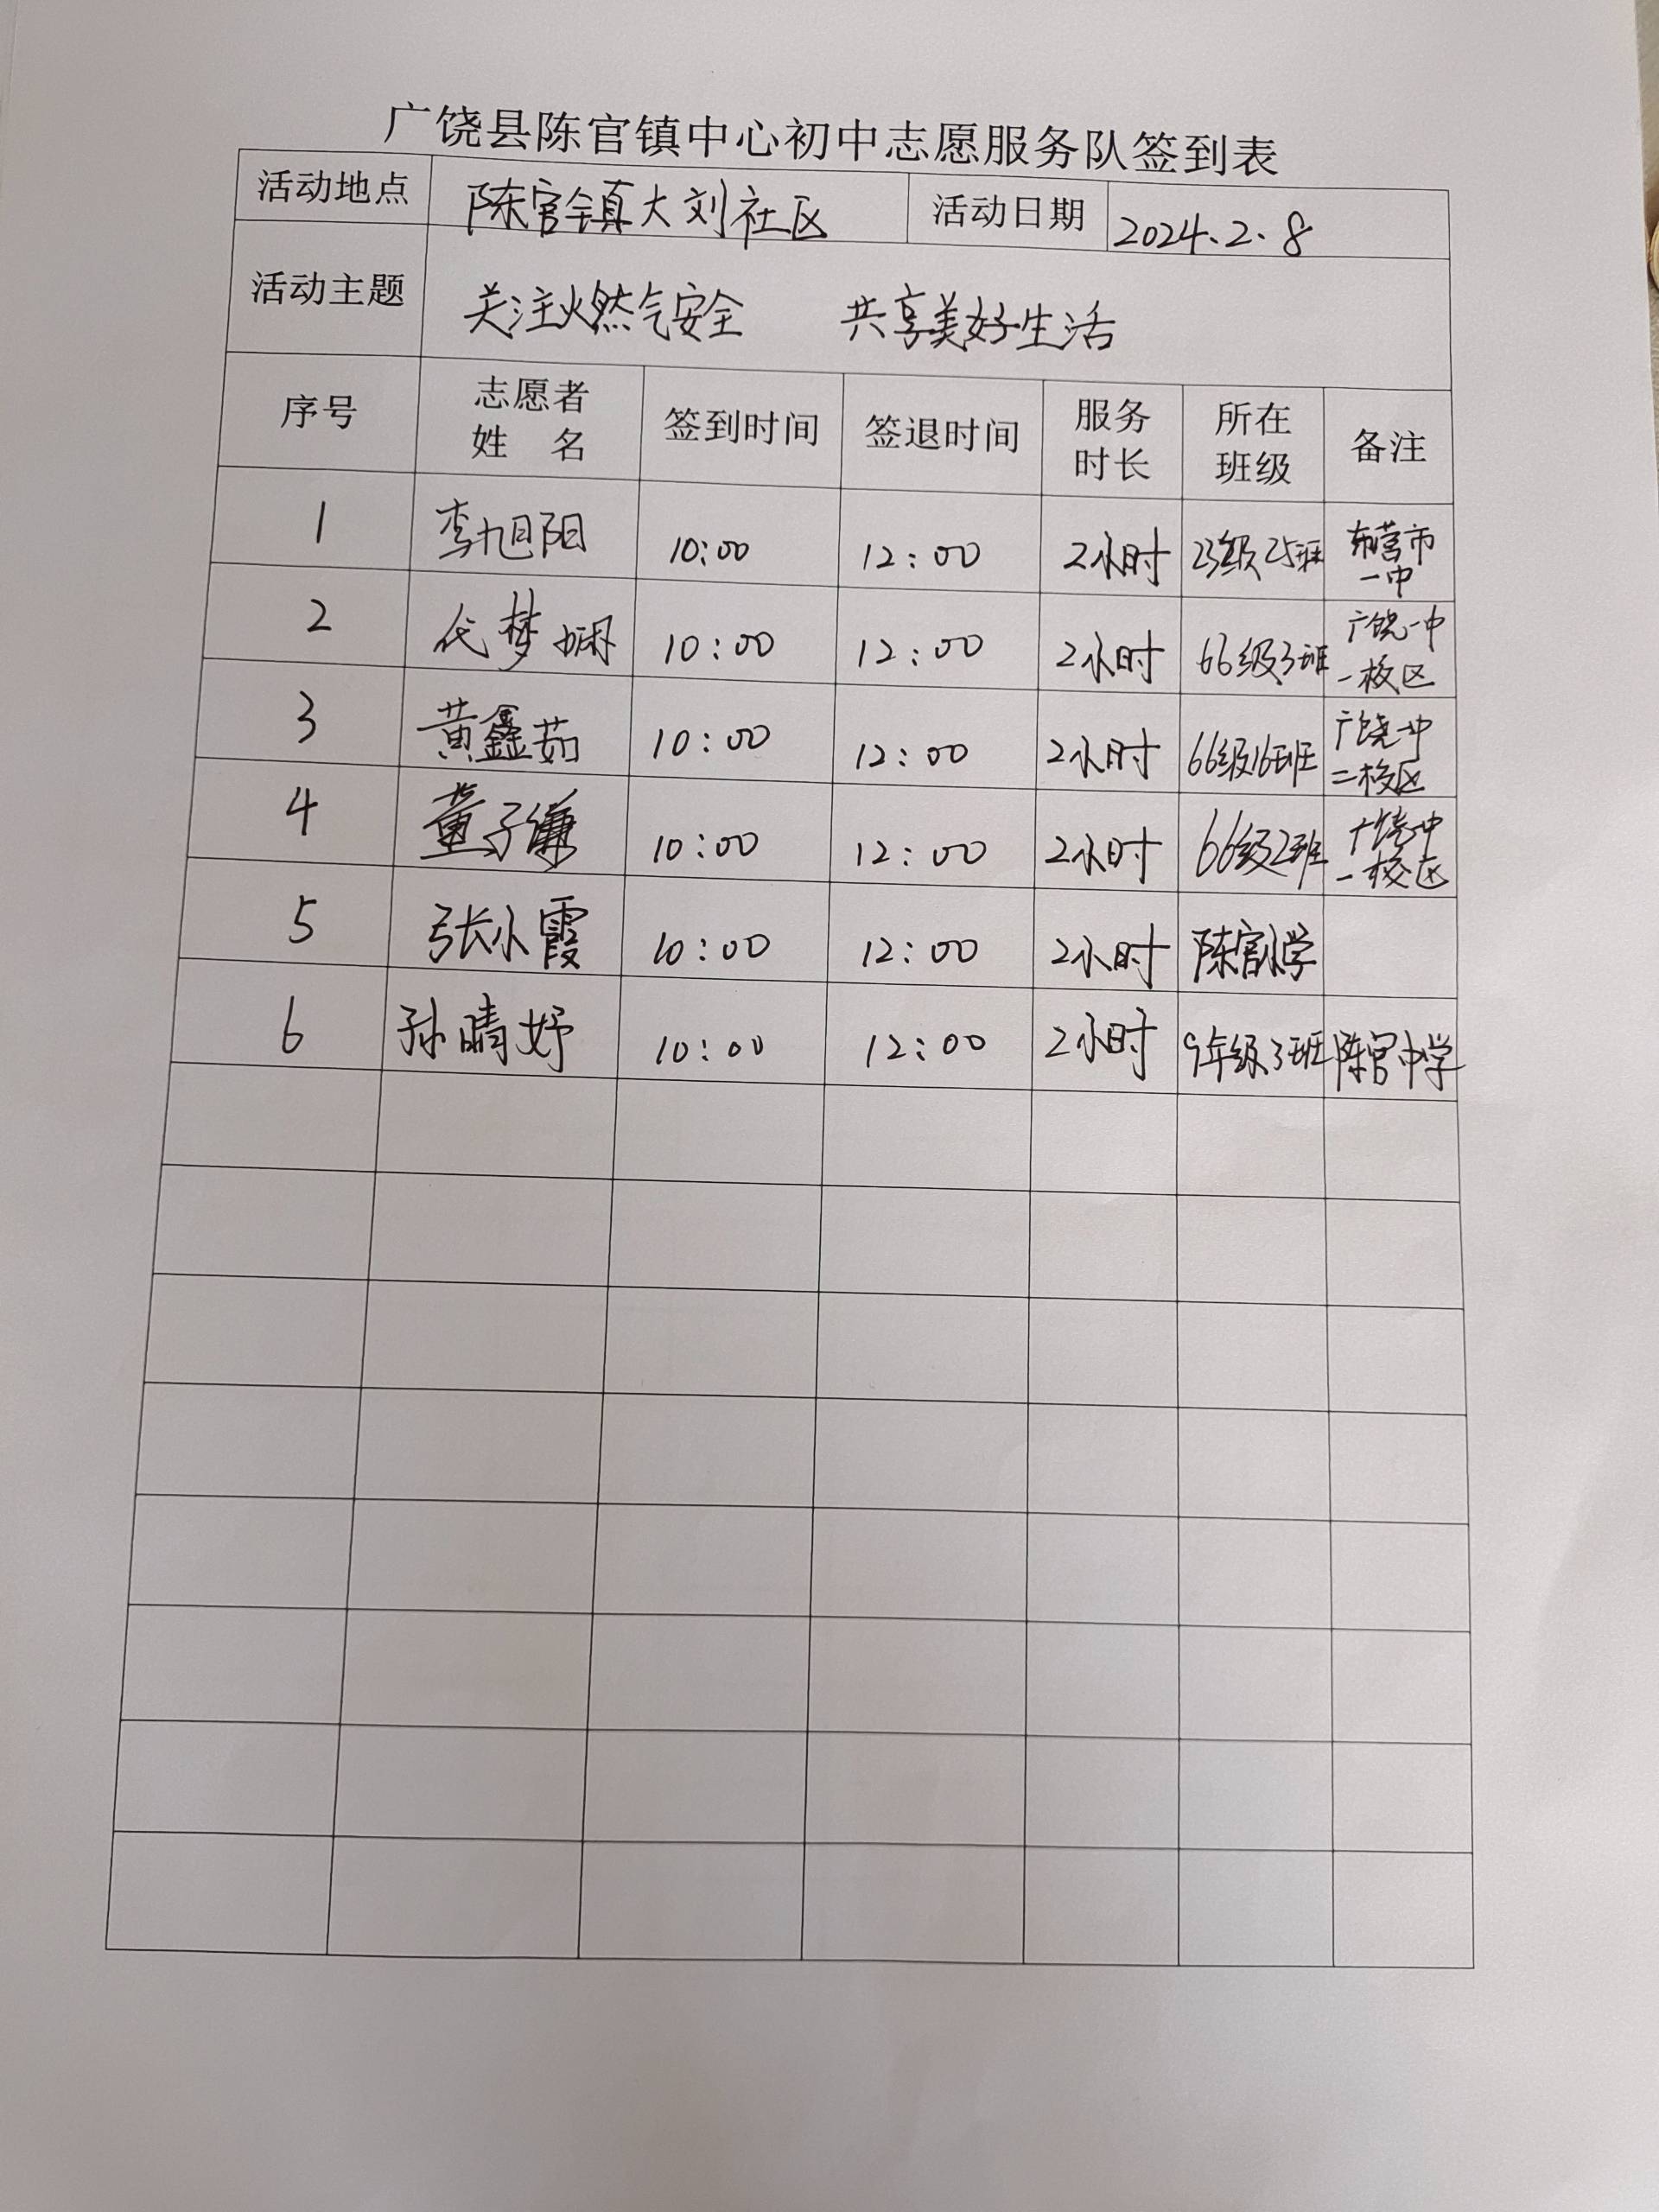 广饶县陈官镇中心初中志愿服务队签到表
活动地点 陈官镇大刘社区 活动日期 2024.2.8
活动主题 关注燃气安全 共享美好生活
序号 志愿者姓名 签到时间 签退时间 服务时长 所在班级 备注
1 李旭阳 10:00 12:00 2小时 23级25班 东营市一中
2 代梦娴 10:00 12:00 2小时 66级3班 广饶一中一校区
3 黄鑫茹 10:00 12:00 2小时 66级16班 广饶一中二校区
4 董子谦 10:00 12:00 2小时 66级2班 广饶一中一校区
5 张小霞 10:00 12:00 2小时 陈官小学
6 孙晴妤 10:00 12:00 2小时 9年级3班 陈官中学